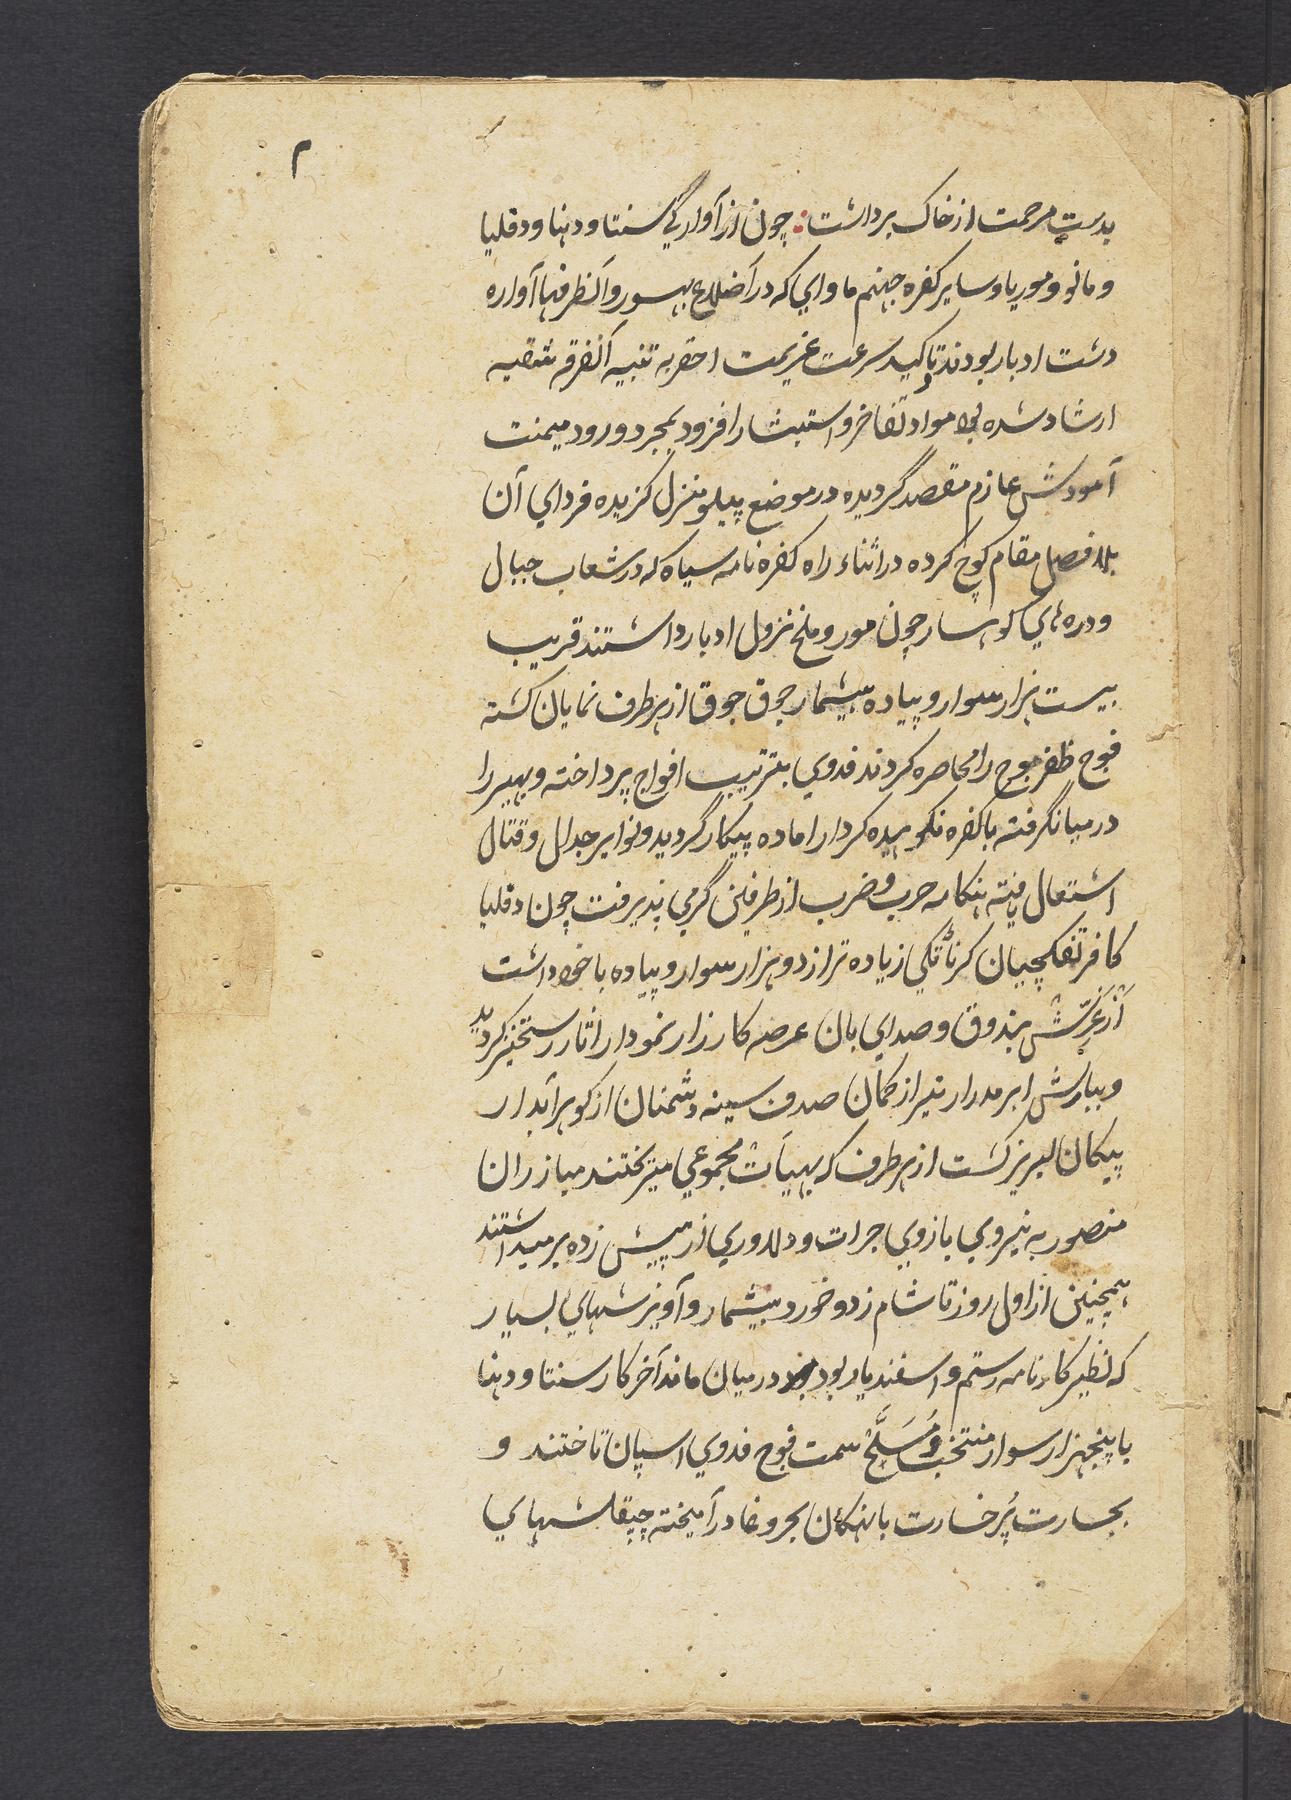 ۳
بدست مرحمت از خاک برداشت : چون از آوارگی سنتا و دهنا و دقلیا
و مانو و موریا و سایر کفره جهنم ماوای که در اضلاع بهسور و آنطرفها آواره
دشت ادبار بودند تاکید سرعت عزیمت احقر به تنبیه آنفرقه شقیه
ارشاد شده بود مواد تفاخر و استبشار افزود بمجرد ورود میمنت
آمودش عازم مقصد گردیده در موضع پیلو منزل گزیده فردای آن
بلا فصل مقام کوچ کرده در اثناء راه کفره نامه سیاه که در شعاب جبال
و درهای کوهسار چون مور و ملخ نزول ادبار داشتند قریب
بیست هزار سوار و پیاده بیشمار جوق جوق از هر طرف نمایان گشته
فوج ظفر موج را محاصره کردند فدوی بترتیب افواج پرداخته و بهیر را
در میان گرفته با کفره نکوهیده کردار اماده پیکار گردید و نوایر جدال و قتال
اشتعال یافته هنگامه حرب و ضرب از طرفین گرمی پذیرفت چون دقلیا
کافر تفنگچیان کرناتکی زیاده تر از دو هزار سوار و پیاده با خود داشت
از غرّش بندوق و صدای بان عرصه کارزار نمودار اثار رستخیز گردید
و ببارش ابر مدرار تیر از کمان صدف سینه دشمنان از گوهر آبدار
پیکان لبریز گشت از هر طرف که بهیأت مجموعی میریختند مبارزان
منصور به نیروی بازوی جرات و دلاوری از پیش زده برمیداشتند
همچنین از اول روز تا شام زد و خورد بیشمار و آویزشهای بسیار
که نظیر کارنامه رستم و اسفندیار بود در میان ماند آخر کار سنتا و دهنا
با پنجهزار سوار منتخب و مُسَلَّح سمت فوج فدوی اسپان تاختند و
بجسارت پُر خسارت با نهنگان بحر وغا در آمیخته چپقلشهای